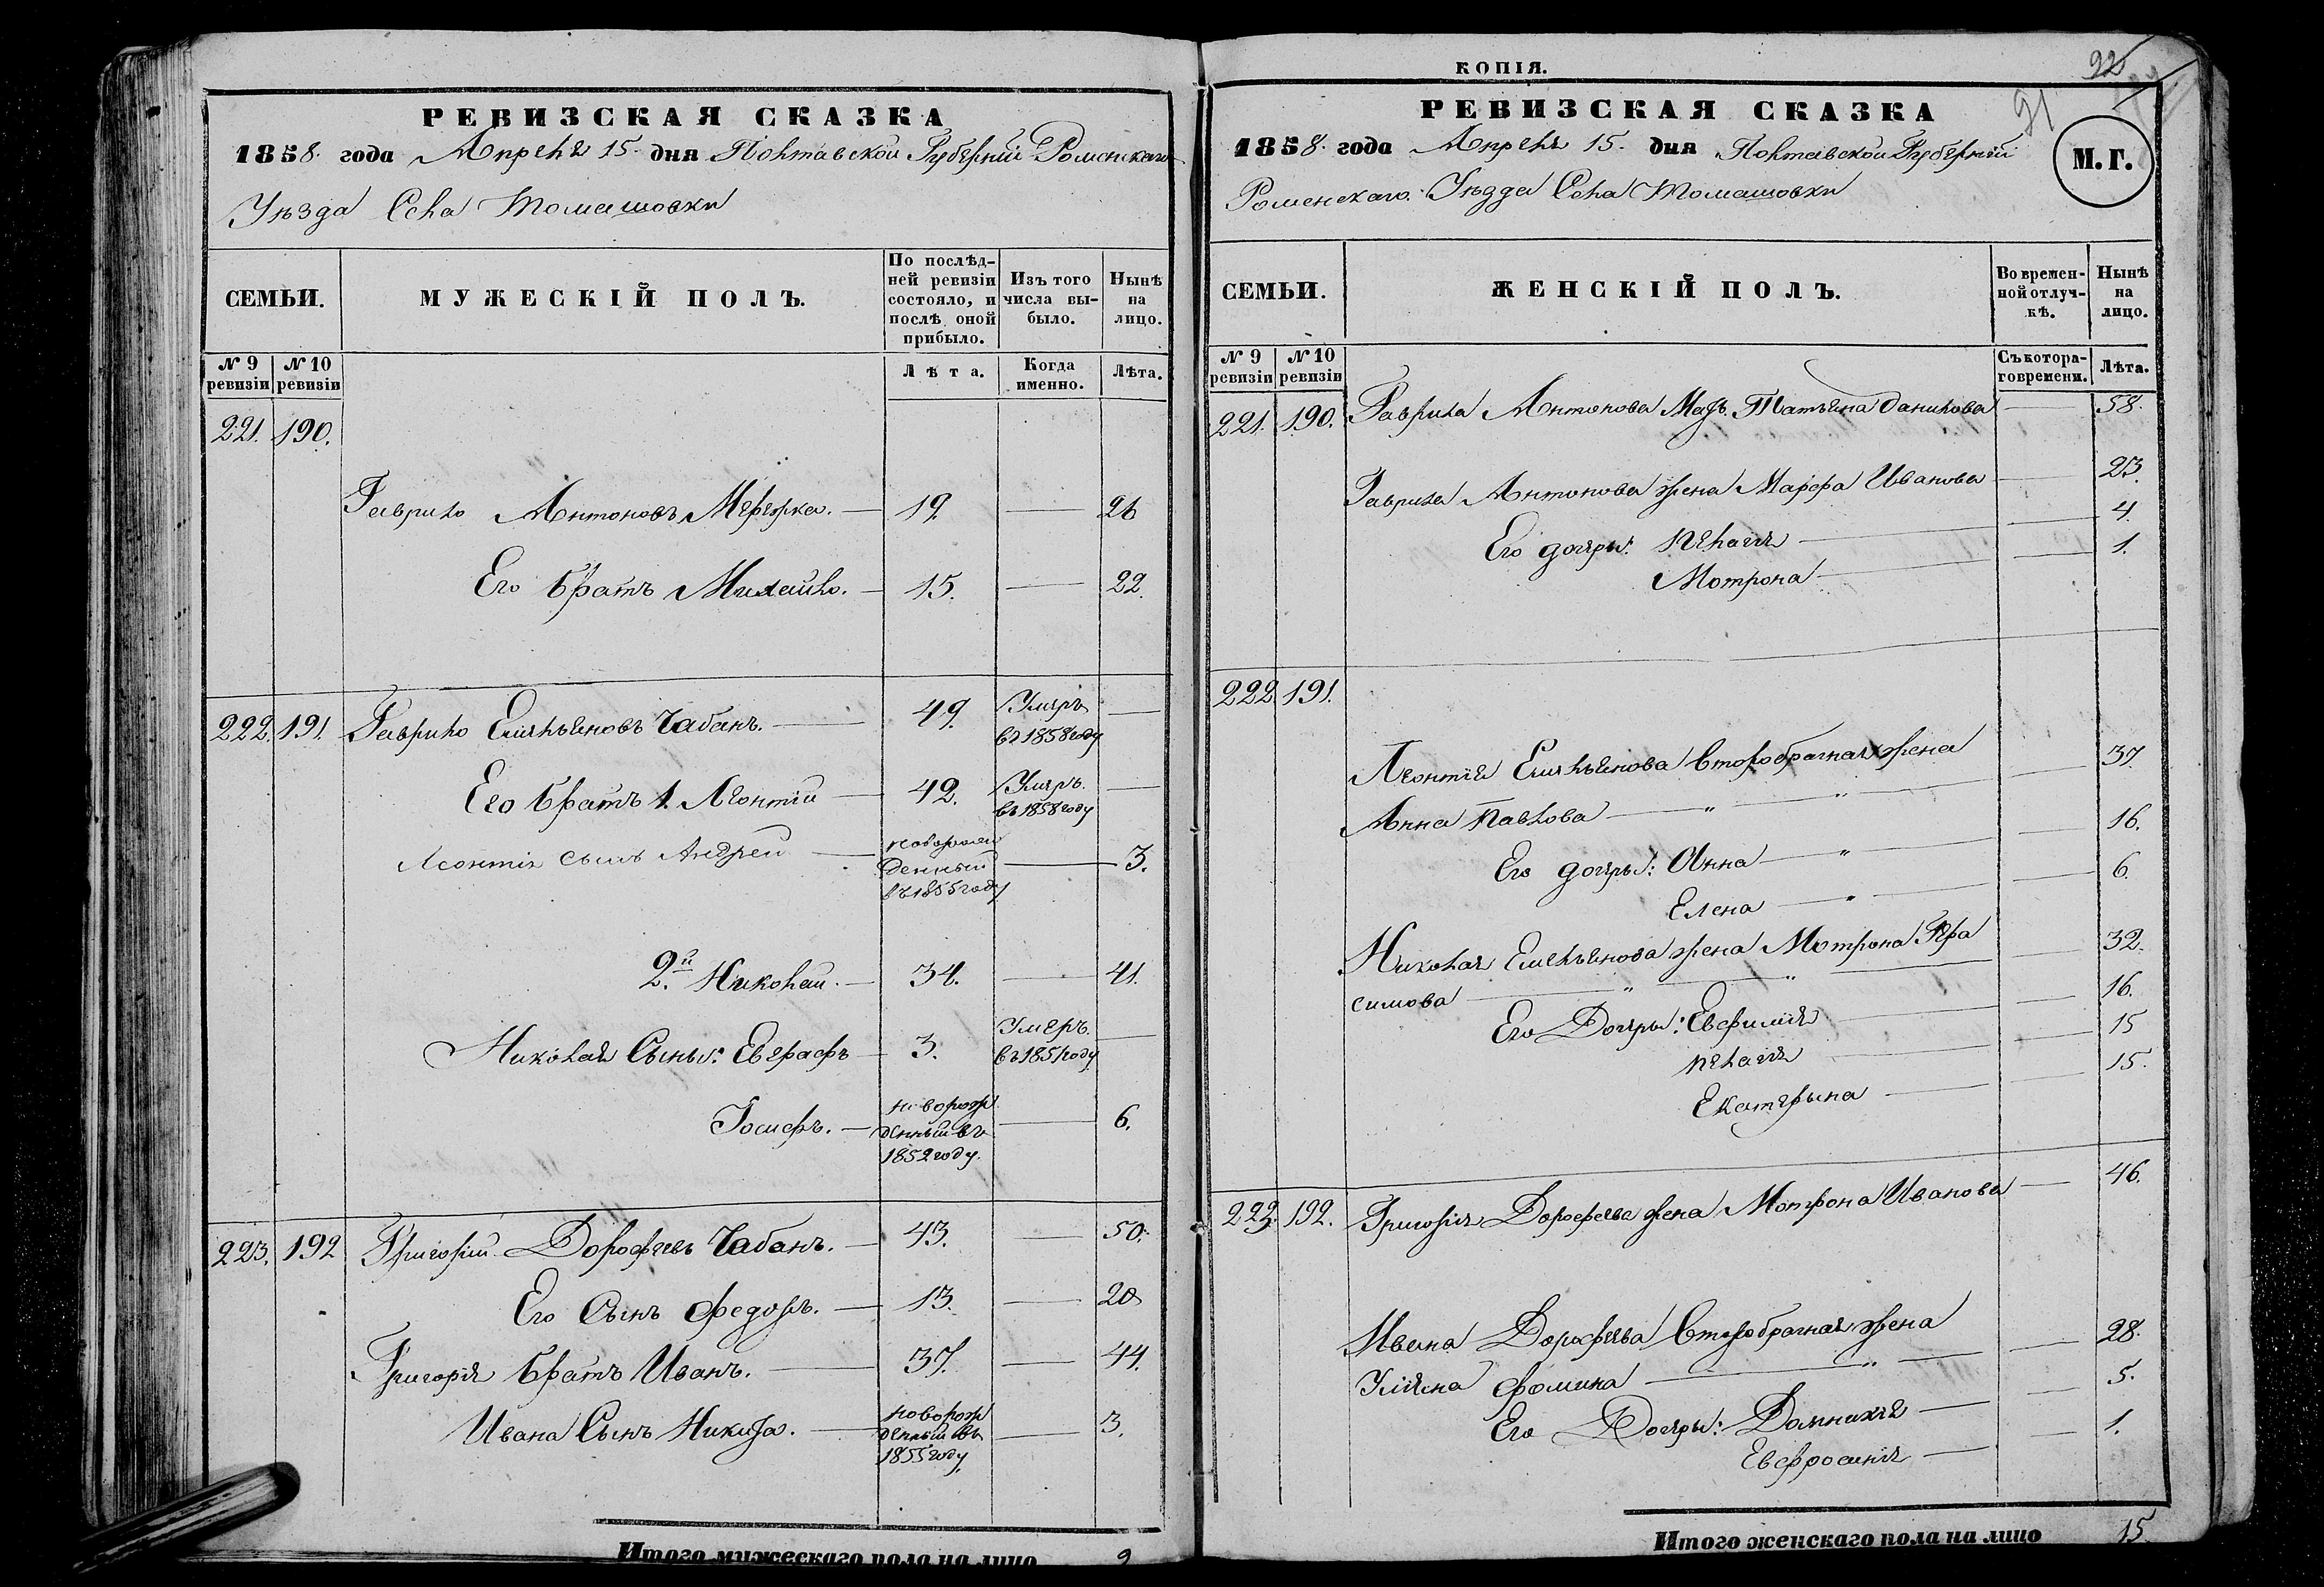 РЕВИЗСКАЯ СКАЗКА
1858. года Апреля 15. дня Полтавской Губернии Роменскаго
Уѣзда Села Томашовки
СЕМЬИ.
МУЖЕСКІЙ ПОЛЪ.
По послѣд-
ней ревизіи
состояло, и
послѣ оной
прибыло.
Изъ того
числа вы-
было.
Нынѣ
на
лицо.
№ 9
ревизіи
№ 10
ревизіи
Лѣта.
Когда
именно.
Лѣта.
221. 190.
Гаврило Антоновъ Мережка. 19. 26
Его братъ Михайло. 15. 22.
222. 191. Гаврило Емельяновъ Чабанъ. 49. Умеръ
въ 1858 году
Его братъ 1. Леонтій 42. Умеръ.
въ 1858 году
Леонтія сынъ Андрей новорож
денный 3.
въ 1855 году
2.й Николай. 34. 41.
Николая Сынъ: Евграфъ 3. Умеръ.
въ 1851 году
Іосифъ. новорож
денный въ 6.
1852 году.
223. 192 Григорій Дорофеевъ Чабанъ. 43. 50.
Его Сынъ Федоръ. 13. 20
Григорія братъ Иванъ. 37. 44.
Ивана Сынъ Никита. новорож
денный въ 3.
1855 году
Итого мужескаго пола на лицо 9
КОПІЯ.
92
91
РЕВИЗСКАЯ СКАЗКА
1858. года Апреля 15. дня Полтавской Губерніи
М.Г.
Роменскаго Уѣзда Села Томашовки
СЕМЬИ.
ЖЕНСКІЙ ПОЛЪ.
Во времен-
ной отлуч-
кѣ.
Нынѣ
на
лицо.
№ 9
ревизіи
№ 10
ревизіи
Съ котора-
го времени.
Лѣта.
221. 190. Гаврила Антонова Мать Татьяна Данилова 58.
Гаврила Антонова жена Марфа Иванова 23.
Его дочери: Пелагия 4.
Мотрона 1.
222 191.
Леонтія Емельянова второбрачная жена 37
Анна Павлова "
Его дочери: Анна " 16.
Елена " 6.
Николая Емельянова жена Мотрона Гера
симова " 32.
Его Дочери: Евфимия 16.
Пелагия 15
Екатерына 15.
223. 192. Григорія Дорофеева жена Мотрона Иванова 46.
Ивана Дорофеева Второбрачная жена
Ульяна Фомина " 28.
Его Дочери: Домникия 5.
Евфросиния 1.
Итого женскаго пола на лицо 15.